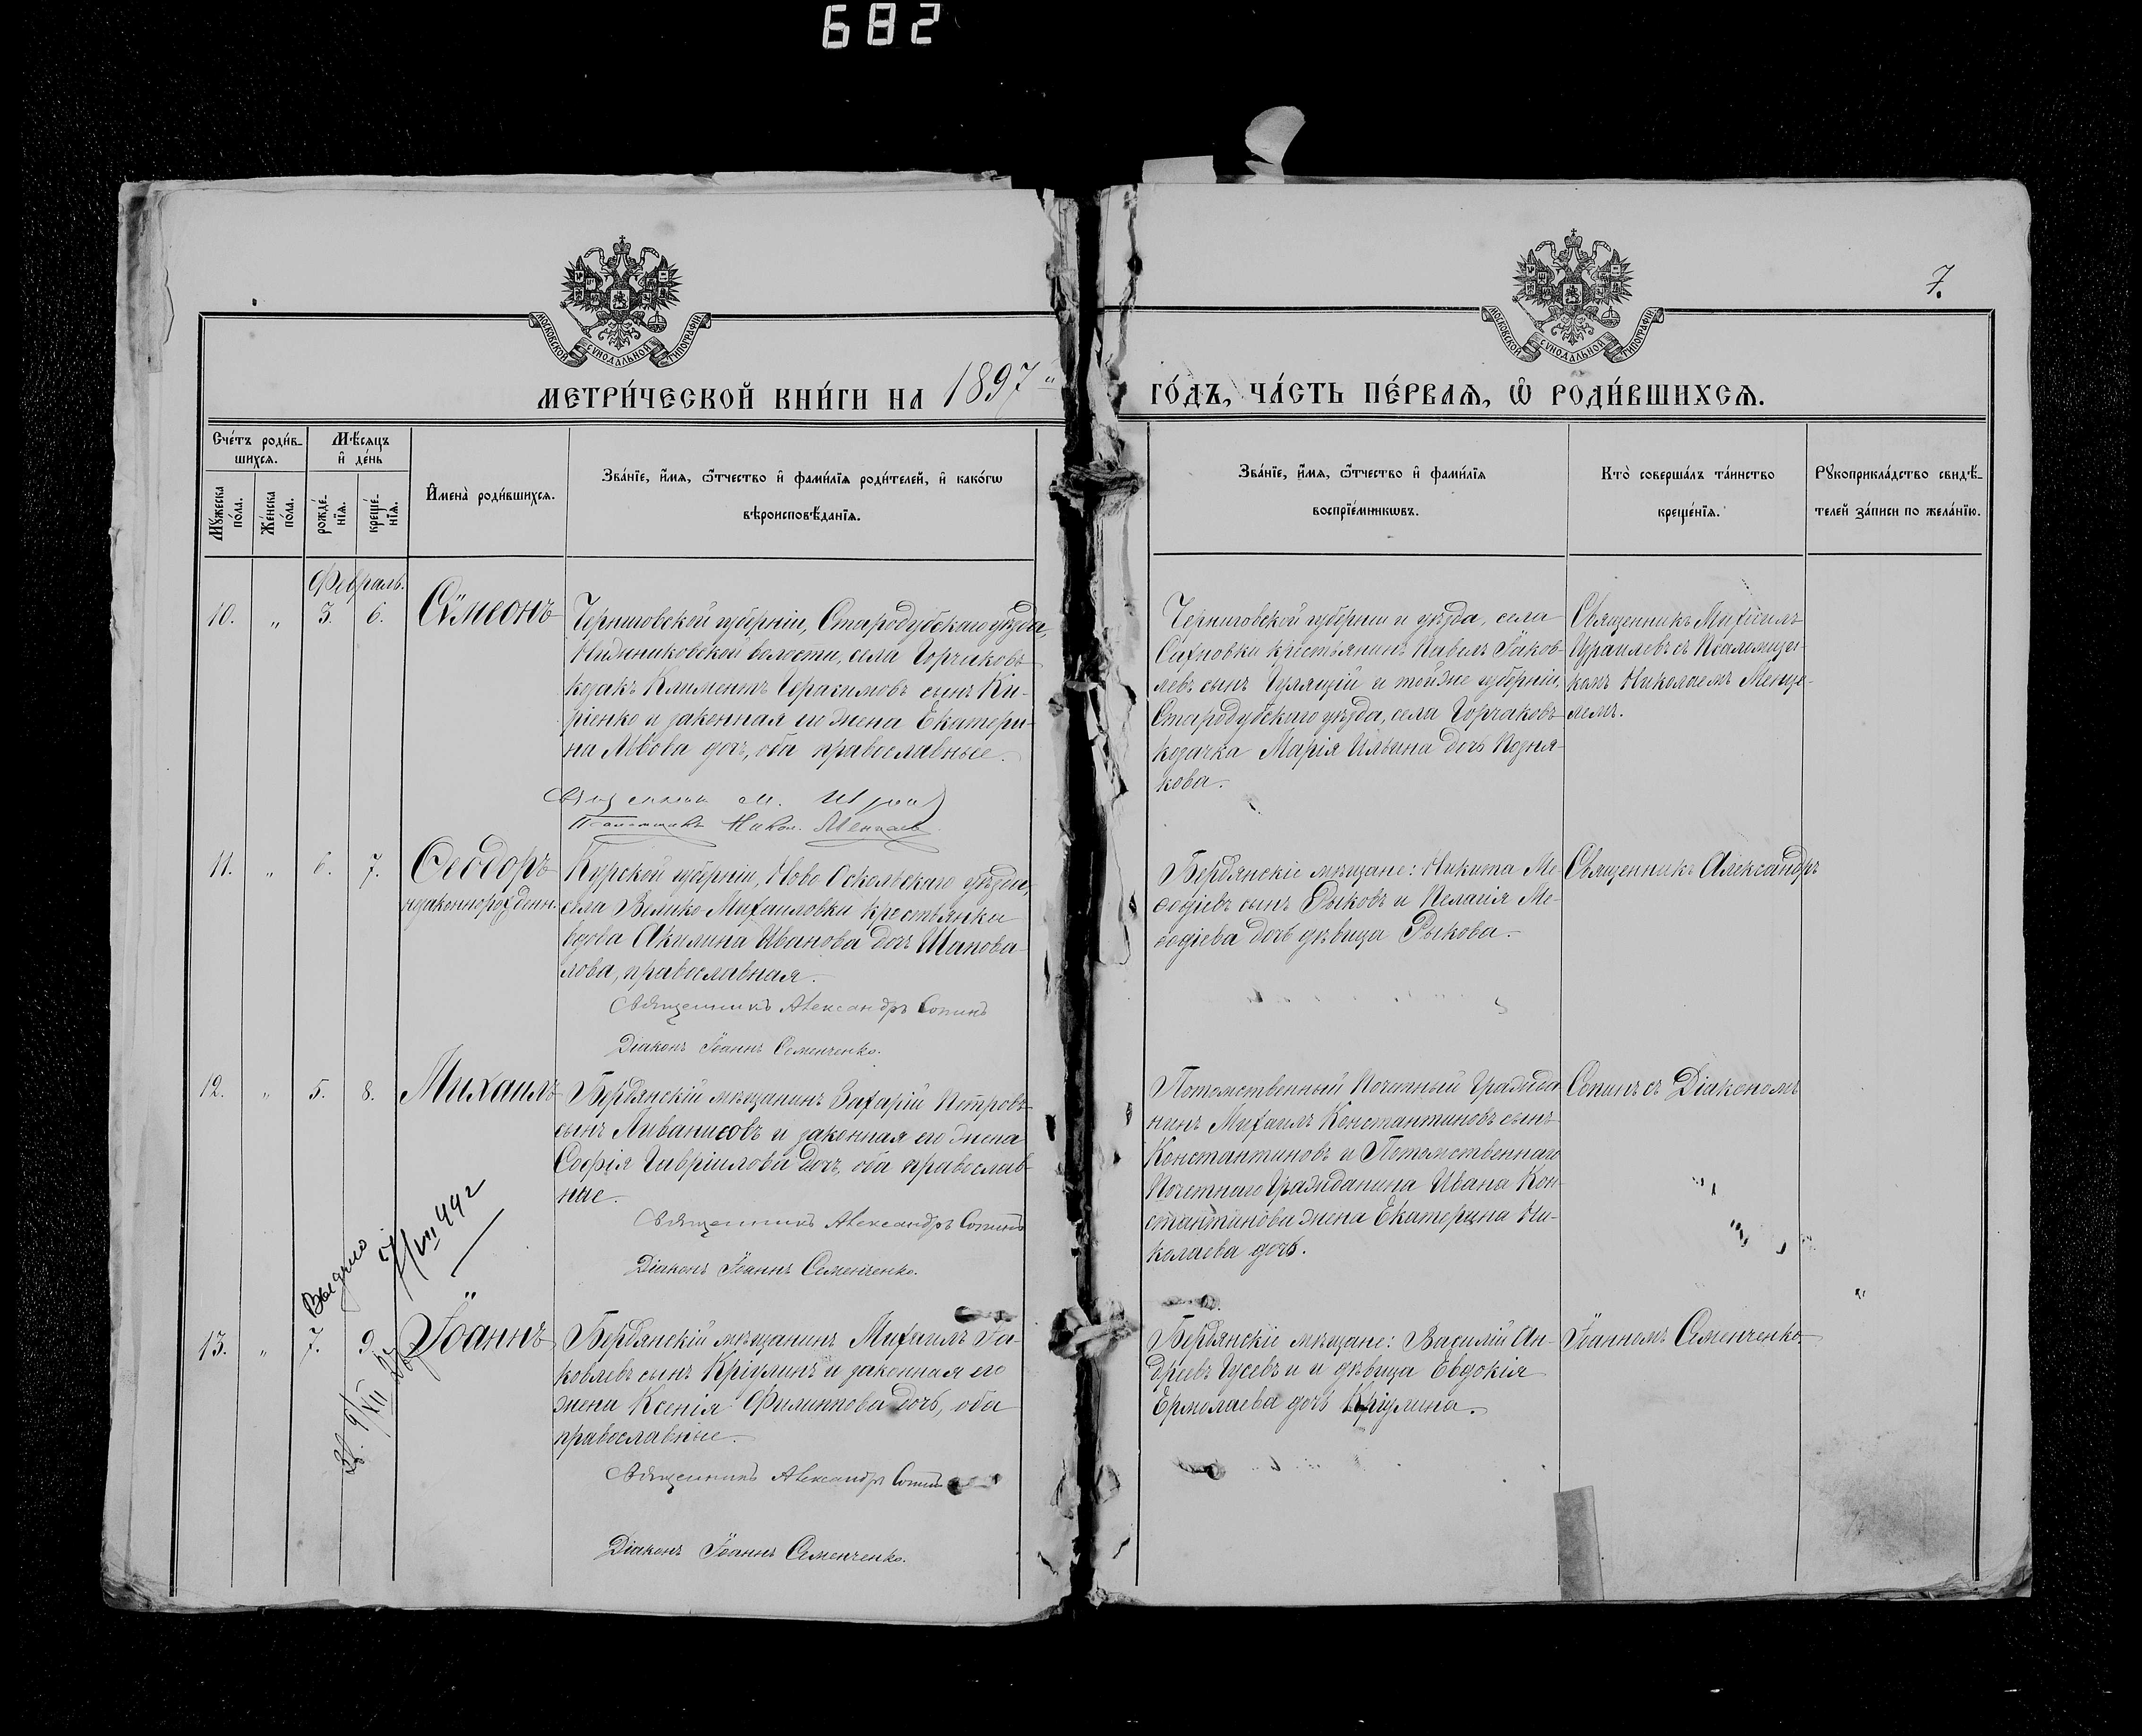 682
7.
МОСКОВСКОЙ СУНОДАЛЬНОЙ ТИПОГРАФІИ
МОСКОВСКОЙ СУНОДАЛЬНОЙ ТИПОГРАФІИ
МЕТРИ́ЧЕСКОЙ КНИ́ГИ НА 1897
ГО́ДЪ, ЧА́СТЬ ПЕ́РВАѦ, Ѿ РОДИ́ВШИХСѦ.
Сче́тъ роди́в-
шихсѧ.
Мꙋжеска по́ла.
Же́нска по́ла.
Мѣ́сяцъ и҆ де́нь
рожде́-
нїѧ.
креще́-
нїѧ.
И҆мена̀ роди́вшихсѧ.
Зва́нїе, и҆́мѧ, ѻ҆́тчество и҆ фами́лїѧ роди́телей, и҆ како́гѡ
вѣроисповѣ́данїѧ.
Зва́нїе, и҆́мѧ, ѻ҆́тчество и҆ фами́лїѧ
воспрїе́мникѡвъ.
Кто̀ соверша́лъ та́инство
креще́нїѧ.
Рꙋкоприкла́дство свидѣ́-
телей за́писи по жела́нїю.
Февраль.
10. „ 3. 6. Сѵмеонъ
Черниговской губерніи, Стародубскаго уѣзда,
волости, села Горчаковъ
козакъ Климентъ Герасимовъ сынъ Ки-
ріенко и законная его жена Екатери-
на Львова дочь, оба православные.
Священникъ М.
Псаломщикъ Никол.
Черниговской губерніи и уѣзда, села
крестьянинъ Павелъ Іаков-
левъ сынъ Гулящій и тойже губерніи,
Стародубскаго уѣзда, села Горчаковъ
козачка Марія Ильина дочь Позня-
кова.
Священникъ Михаилъ
Израилевъ съ Псаломщи-
комъ Николаемъ Менце-
лемъ.
11. „ 6. 7. Ѳеодоръ
незаконнорожденн.
Курской губерніи, Ново Оскольскаго уѣзда,
села Велико-Михаиловки крестьянки
вдова Акилина Иванова дочь Шапова-
лова, православная.
Священникъ Александръ Сопинъ
Діаконъ Іоаннъ Семенченко.
Бердянскіе мѣщане: Никита Ме-
ѳодіевъ сынъ Рыковъ и Пелагія Ме-
ѳодіева дочь дѣвица Рыкова.
Священникъ Александръ
12. „ 5. 8. Михаилъ
Бердянскій мѣщанинъ Захарій Петровъ
сынъ Ливанисовъ и законная его жена
Софія Гавріилова дочь, оба православ-
ные.
Священникъ Александръ Сопинъ
Діаконъ Іоаннъ Семенченко.
Потомственный Почетный Гражда-
нинъ Михаилъ Константиновъ сынъ
Константиновъ и Потомственнаго
Почетнаго Гражданина Ивана Кон-
стантинова жена Екатерина Ни-
колаева дочь.
Сопинъ съ Діакономъ
Выдано
7/VIII 49 г
9/XII
13. „ 7. 9. Іоаннъ
Бердянскій мѣщанинъ Михаилъ Іа-
ковлевъ сынъ Кріулинъ и законная его
жена Ксенія Филиппова дочь, оба
православные.
Священникъ Александръ Сопинъ
Діаконъ Іоаннъ Семенченко.
Бердянскіе мѣщане: Василій Ан-
дреевъ Гусевъ и и дѣвица Евдокія
Ермолаева дочь Кріулина.
Іоанномъ Семенченко